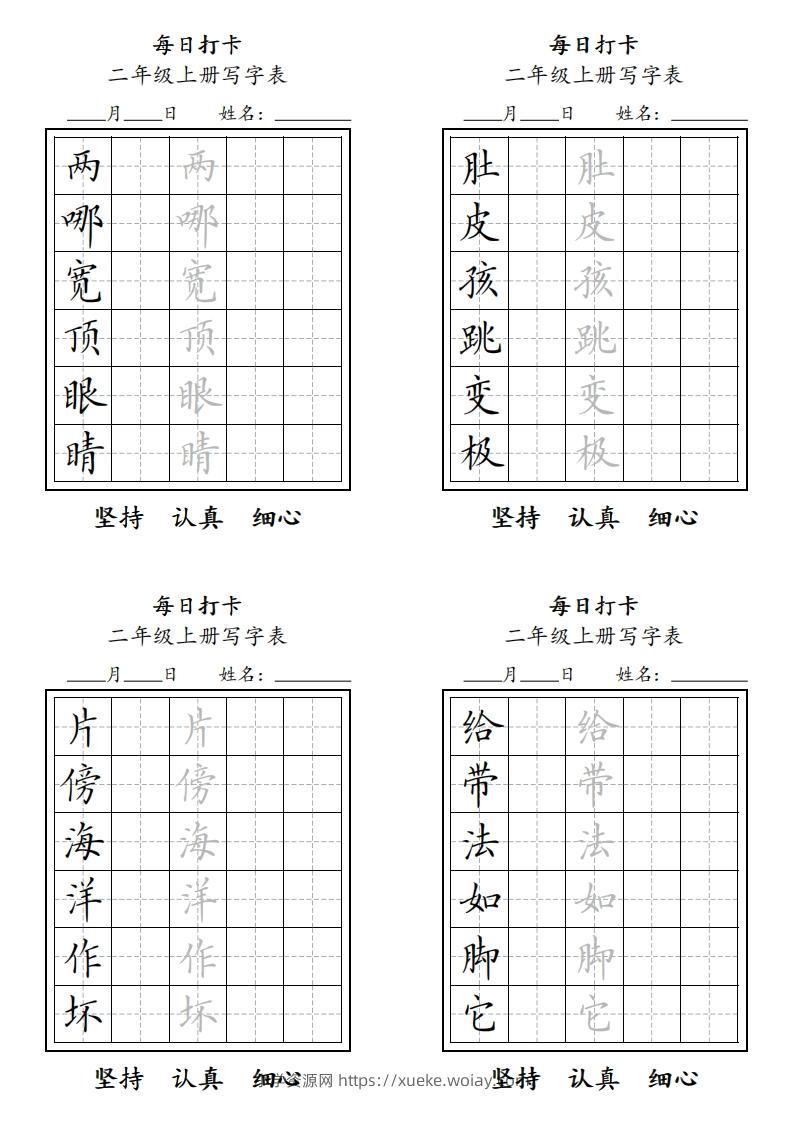 每日打卡
二年级上册写字表
____月____日 姓名：________
两 两
哪 哪
宽 宽
顶 顶
眼 眼
晴 晴
坚持 认真 细心
每日打卡
二年级上册写字表
____月____日 姓名：________
肚 肚
皮 皮
孩 孩
跳 跳
变 变
极 极
坚持 认真 细心
每日打卡
二年级上册写字表
____月____日 姓名：________
片 片
傍 傍
海 海
洋 洋
作 作
坏 坏
坚持 认真 细心
每日打卡
二年级上册写字表
____月____日 姓名：________
给 给
带 带
法 法
如 如
脚 脚
它 它
坚持 认真 细心
资源网 https://xueke.woiay.com